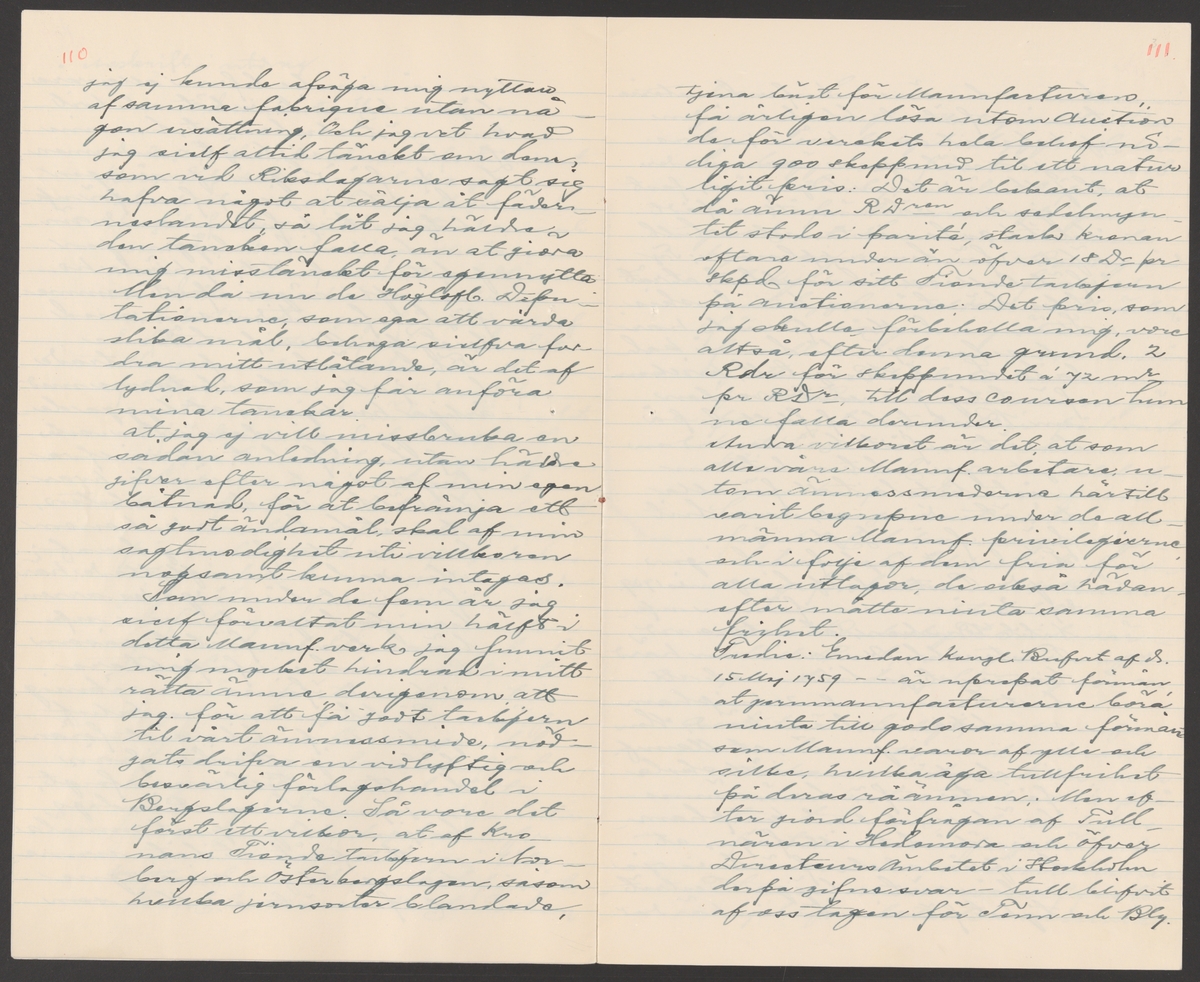 110
jag ej kunde afsäga mig nyttan
af samma fabrique utan nå-
gon ersättning. Och jag vet hvad
jag sielf altid tänckt om dem,
som vid Riksdagarne sagt sig
hafva något at sälja åt fäder-
neslandet, så lät jag häldre
den tancken falla, än at giöra
mig misstänckt för egennytta.
Men då nu de Höglofl. Depu-
tationerne, som ega att vårda
slika mål, behaga sielfva for-
dra mitt utlåtande, är det af
lydnad, som jag får anföra
mina tanckar
at jag ej vill missbruka en
sådan anledning, utan häldre
gifver efter något af min egen
båtnad, för at befrämja ett
så godt ändamål, skal af min
sagtmodighet uti villkoren
nogsamt kunna intagas.
Som under de fem år jag
sielf förvaltat min hälft i
detta Manuf. verk jag funnit
mig mycket hindrad i mitt
rätta ämne derigenom, att
jag för att få godt tackjern
til vårt ämnessmide, nöd-
gats drifva en vidlyftig och
besvärlig förlagshandel i
Bergslagerne. Så vore det
först ett vilkor, at af Kro-
nans Tionde tackjern i Nor-
berg och Österbergslagen, såsom
hvilka jernsorter blandade,
111
tjena bäst för Manufacturen,
få årligen lösa utom Auction
de för verckets hela behof nö-
diga 900 skeppund til ett natur
ligit pris: Det är bekant, at
då ännu RDren och sedelmyn-
tet stodo i parité, stack kronan
oftare under än öfver 18 Dr pr
skpd för sitt Tionde tackjern
på auctionerne: Det pris, som
jag skulle förbehålla mig, vore
altså, efter denna grund, 2
Rdr för skeppundet á 72 mr
pr RDr, till dess coursen hun
ne falla derunder.
Andra vilkoret är det, at som
alla våra Manuf. arbetare, u-
tom ämnessmederna härtill
varit begripne under de all-
männa Manuf. privilegierne
och i följe af dem fria för
alla utlagor, de också hädan-
efter måtte niuta samma
frihet.
Tredie: Emedan Kongl. Brefvet af d.
15 Maj 1759 - - är uprepat förmån,
at jernmanufacturerne böra
niuta till godo samma förmån
som Manuf. varor af ylle och
silke, hvilka äga tullfrihet
på deras råämnen. Men ef-
ter giord förfrågan af Tull-
nären i Hedemora och öfver
Directeurs Ämbetet i Stockholm
derpå gifne svar - tull blifvit
af oss tagen för Tenn och Bly.